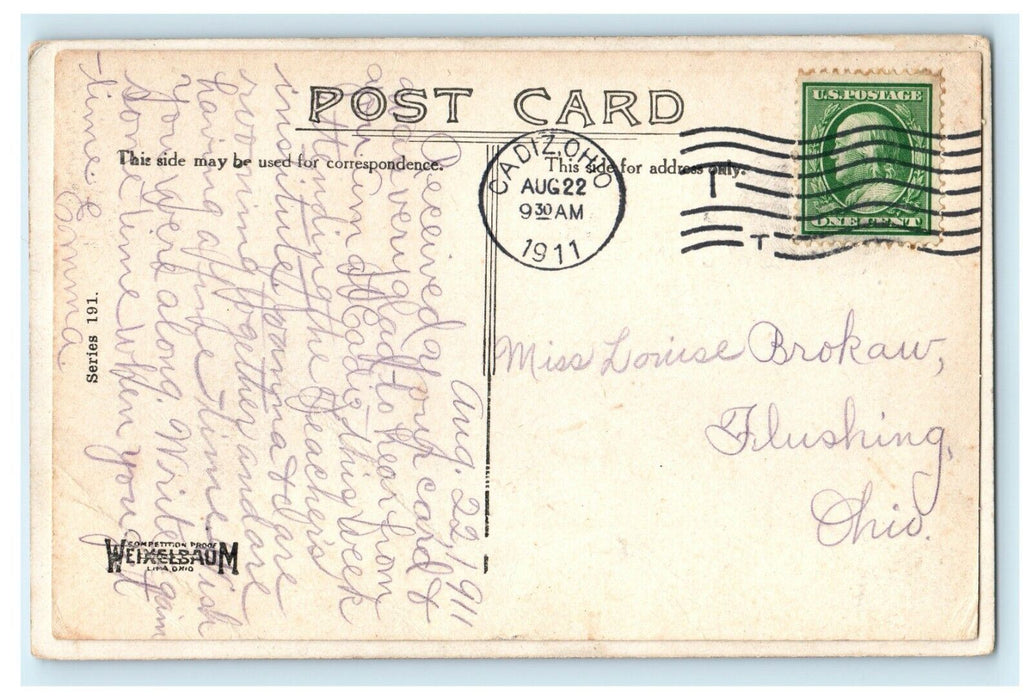 POST CARD
This side may be used for correspondence.
This side for address only.
U.S. POSTAGE
ONE CENT
CADIZ, OHIO
AUG 22
9 30 AM
1911
T
T
Aug. 22, 1911
Received your card &
was very glad to hear from
you. I'm at Cadiz this week
attending the Teacher's
institute. & I are
rooming together and are
having a fine time. Wish
you were along. Write again
some time when you get
time.
Emma
Miss Louise Brokaw,
Flushing,
Ohio.
Series 191.
COMPETITION PROOF
WEIXELBAUM
LIMA OHIO